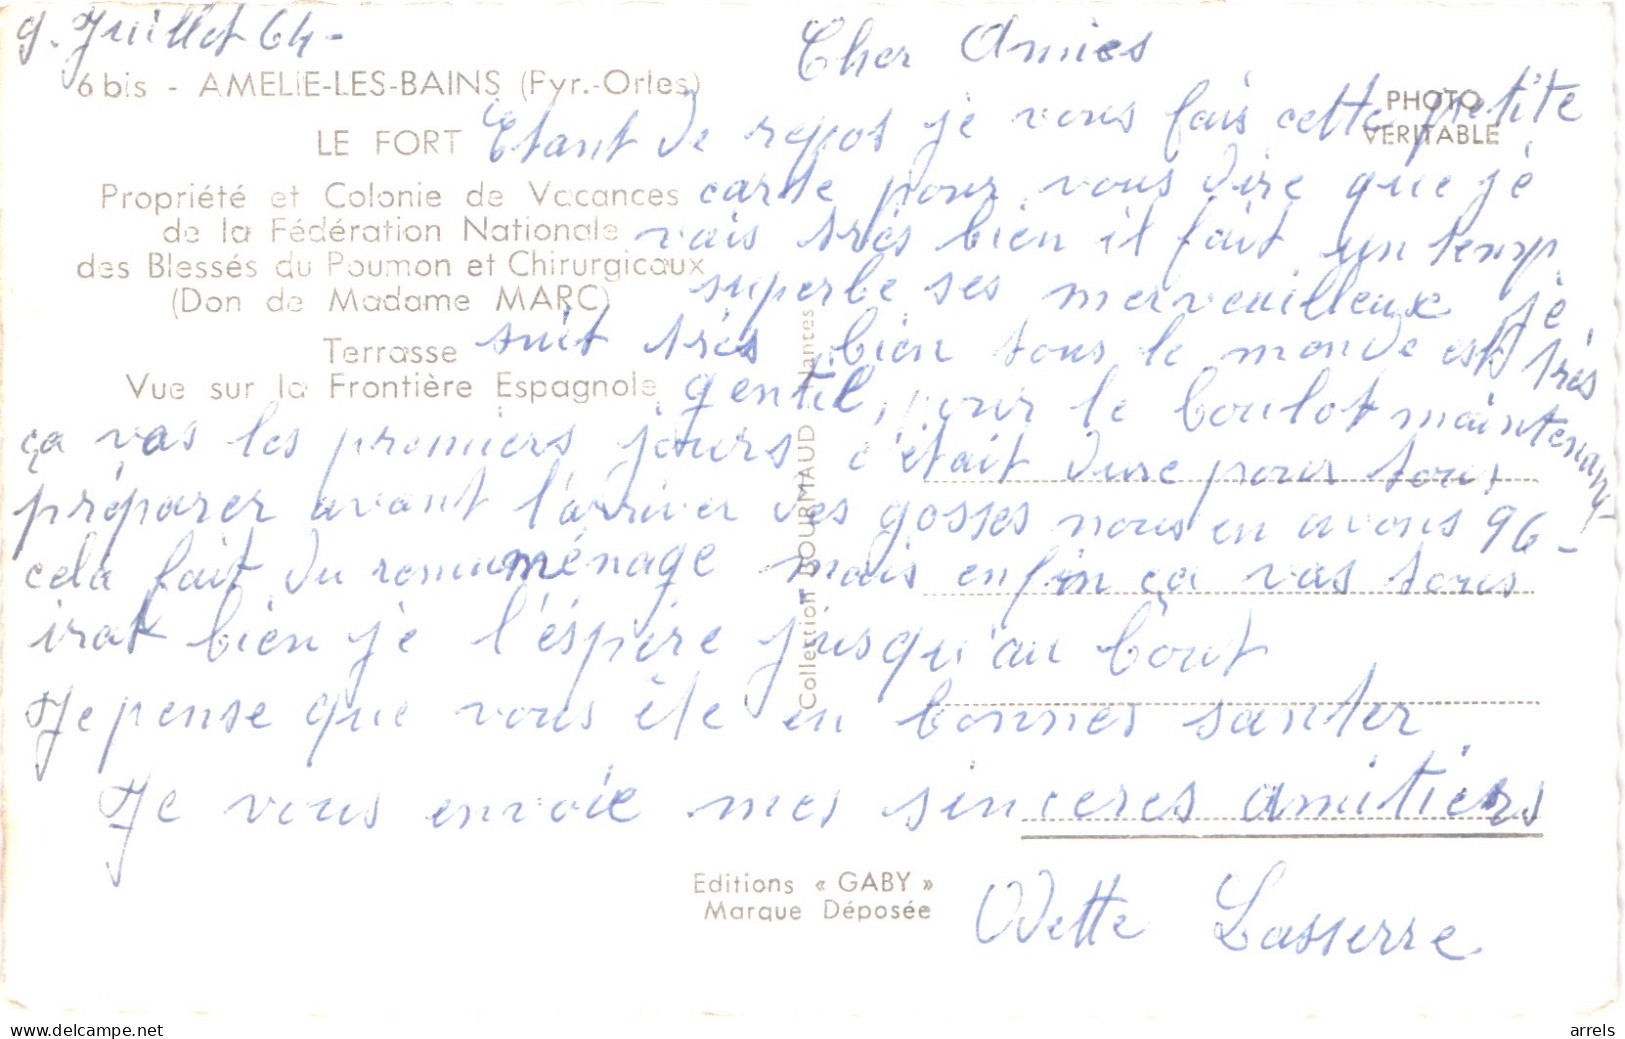 9. Juillet 64-
Cher Amies
6 bis - AMELIE-LES-BAINS (Pyr.-Orles)
PHOTO
VERITABLE
LE FORT
Etant de repos je vous fais cette petite
Propriété et Colonie de Vacances
carte pour vous dire que je
de la Fédération Nationale
vais très bien il fait un temp
des Blessés du Poumon et Chirurgicaux
(Don de Madame MARC)
superbe ses merveuilleux je
Terrasse
suit très bien tous le monde est très
Vue sur la Frontière Espagnole
gentil, pour le boulot maintenant
ça vas les premiers jours c'était dure pour tous
préparer avant l'arriver des gosses nous en avons 96-
cela fait du remuménage mais enfin ça vas tous
irat bien je l'éspère jusqu'au bout
Je pense que vous ête en bonnes santer
Je vous envoie mes sinceres amitiers
Collection BOURMAUD - Nantes
Editions « GABY »
Marque Déposée
Odette Lasserre
www.delcampe.net
arrels